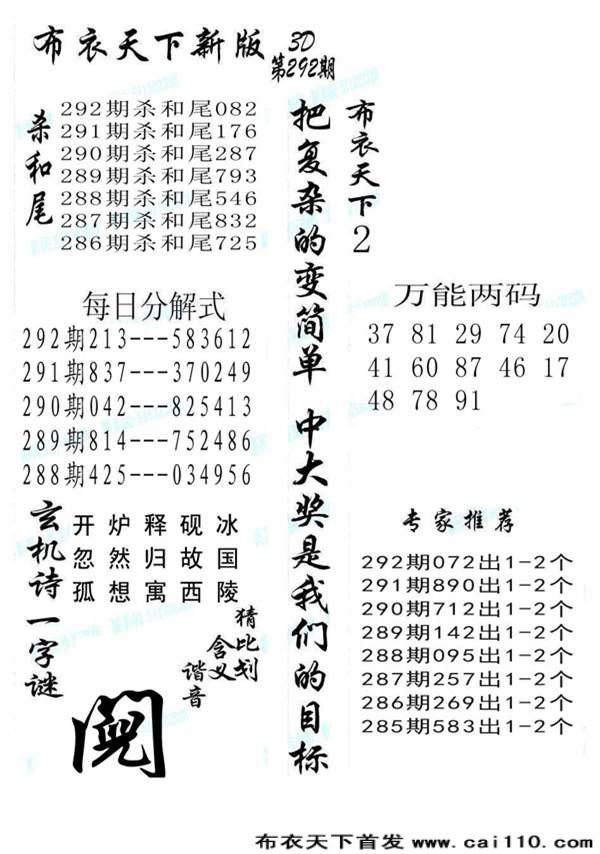 布衣天下新版
3D
第292期
杀和尾
292期杀和尾082
291期杀和尾176
290期杀和尾287
289期杀和尾793
288期杀和尾546
287期杀和尾832
286期杀和尾725
每日分解式
292期213---583612
291期837---370249
290期042---825413
289期814---752486
288期425---034956
玄机诗一字谜
开炉释砚冰
忽然归故国
孤想寓西陵
猜比划
含义
谐音
把复杂的变简单 中大奖是我们的目标
布衣天下2
万能两码
37 81 29 74 20
41 60 87 46 17
48 78 91
专家推荐
292期072出1-2个
291期890出1-2个
290期712出1-2个
289期142出1-2个
288期095出1-2个
287期257出1-2个
286期269出1-2个
285期583出1-2个
布衣天下首发 www.cai110.com